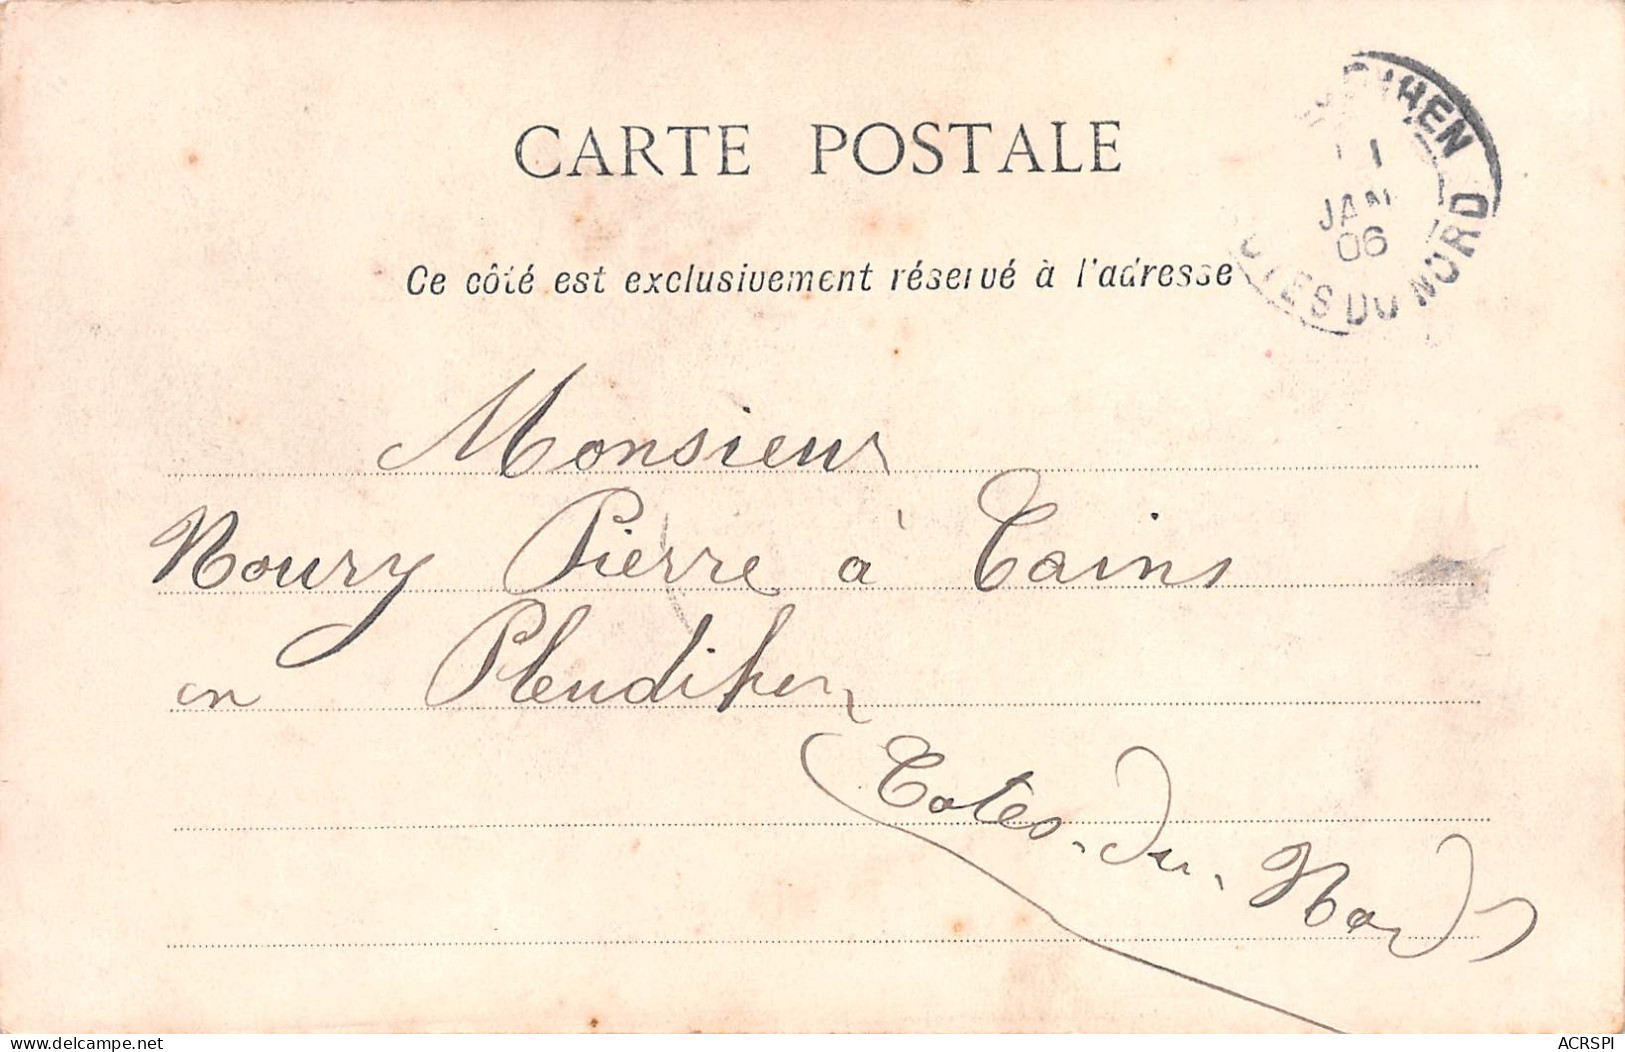 CARTE POSTALE
Ce côté est exclusivement réservé à l'adresse
JAN
06
CÔTES DU NORD
Monsieur
Noury Pierre à Tains
en Pleudihen
Cotes-du-Nord
delcampe.net
ACRSPI